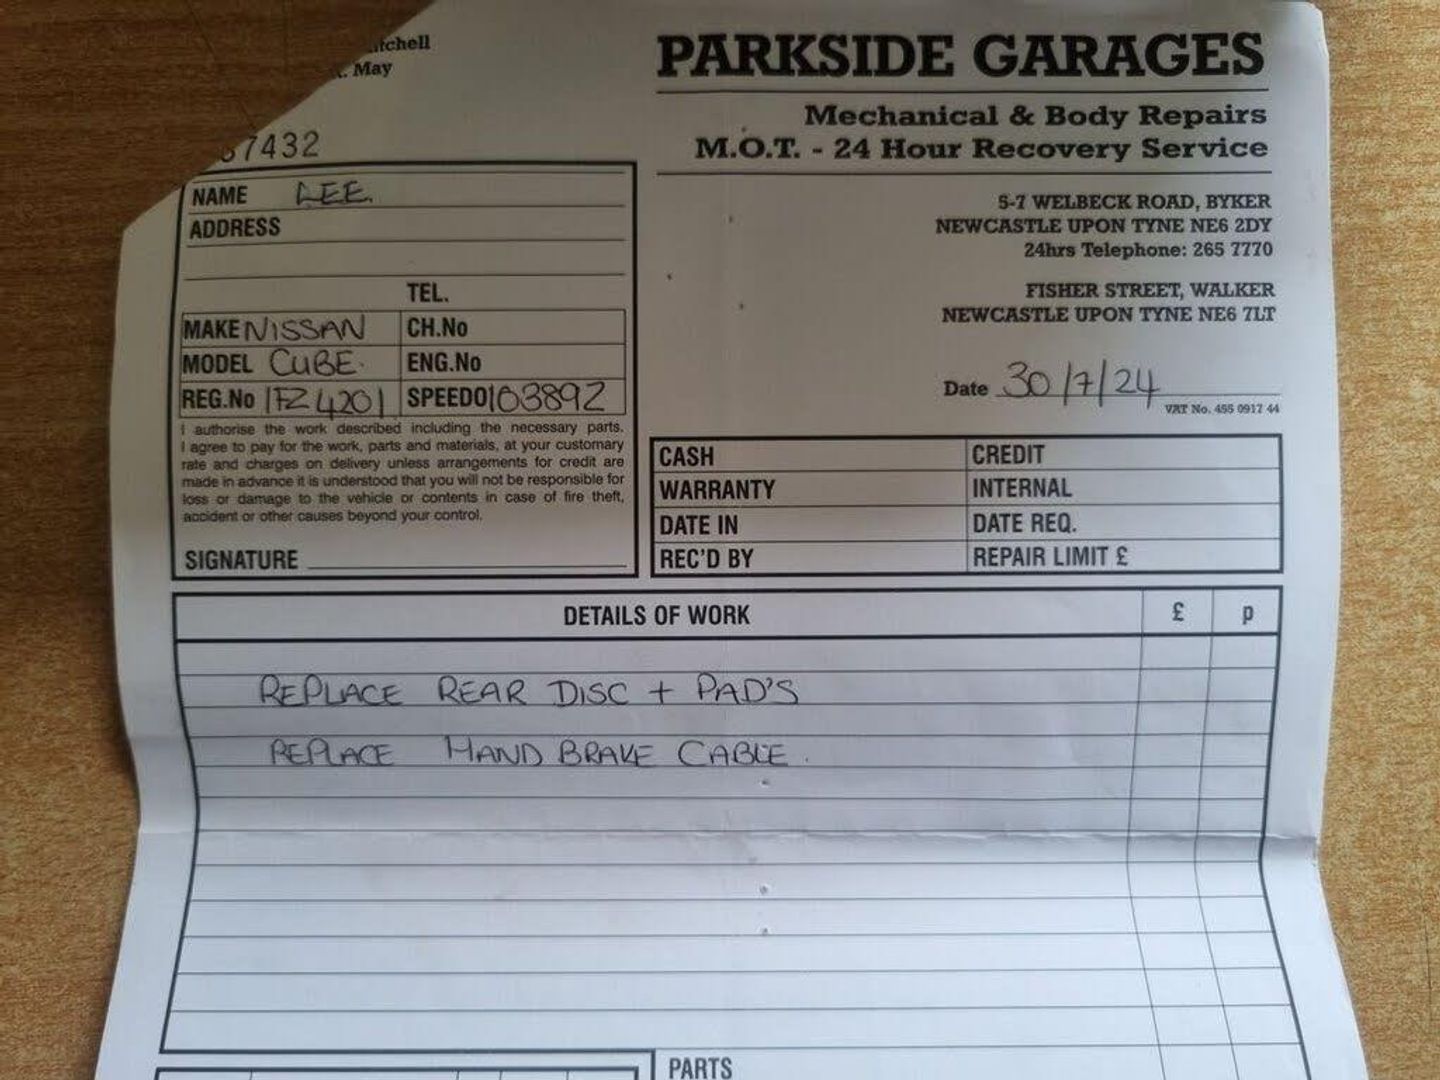 PARKSIDE GARAGES
Mechanical & Body Repairs
M.O.T. - 24 Hour Recovery Service
5-7 WELBECK ROAD, BYKER
NEWCASTLE UPON TYNE NE6 2DY
24hrs Telephone: 265 7770
FISHER STREET, WALKER
NEWCASTLE UPON TYNE NE6 7LT
Date 30/7/24
VAT No. 455 0917 44
May
7432
NAME LEE
ADDRESS
TEL.
MAKE NISSAN CH.No
MODEL CUBE. ENG.No
REG.No IFZ 4201 SPEEDO 103892
I authorise the work described including the necessary parts.
I agree to pay for the work, parts and materials, at your customary
rate and charges on delivery unless arrangements for credit are
made in advance it is understood that you will not be responsible for
loss or damage to the vehicle or contents in case of fire theft,
accident or other causes beyond your control.
SIGNATURE
CASH CREDIT
WARRANTY INTERNAL
DATE IN DATE REQ.
REC'D BY REPAIR LIMIT £
DETAILS OF WORK £ p
REPLACE REAR DISC + PAD'S
REPLACE HAND BRAKE CABLE.
PARTS